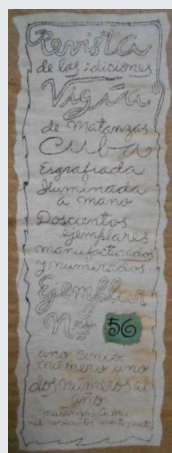 Revista
de las ediciones
Vigía
de Matanzas
Cuba
Esgrafiada
Iluminada
a mano
Doscientos
ejemplares
manufacturados
y numerados
Ejemplar
Nro 56
año
número uno
dos números al
año